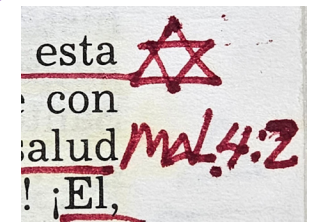 esta
e con
salud MAL. 4:2
! ¡El,